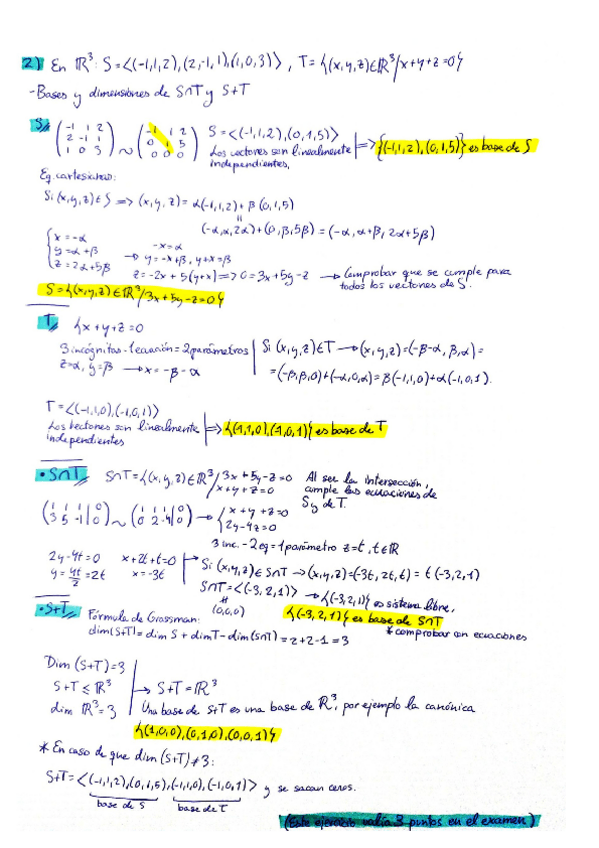 2) En ℝ³: S=<(-1,1,2),(2,-1,1),(1,0,3)>, T={(x,y,z)∈ℝ³/x+y+z=0}
-Bases y dimensiones de S∩T y S+T
S
(-1 1 2 / 2 -1 1 / 1 0 3) ~ (-1 1 2 / 0 1 5 / 0 0 0) S=<(-1,1,2),(0,1,5)>
Los vectores son linealmente independientes. => {(-1,1,2),(0,1,5)} es base de S
Eq. cartesianas:
Si (x,y,z)∈S => (x,y,z)= α(-1,1,2)+β(0,1,5)
=
(-α,α,2α)+(0,β,5β)=(-α,α+β,2α+5β)
{x=-α
y=α+β
z=2α+5β
-x=α
→ y=-x+β, y+x=β
z=-2x+5(y+x)=>0=3x+5y-z → Comprobar que se cumple para todos los vectores de S.
S={(x,y,z)∈ℝ³/3x+5y-z=0}
T {x+y+z=0
3 incógnitas-1 ecuación=2 parámetros
z=α, y=β → x=-β-α
Si (x,y,z)∈T → (x,y,z)=(-β-α,β,α)=
=(-β,β,0)+(-α,0,α)=β(-1,1,0)+α(-1,0,1).
T=<(-1,1,0),(-1,0,1)>
Los vectores son linealmente independientes => {(-1,1,0),(-1,0,1)} es base de T
• S∩T S∩T={(x,y,z)∈ℝ³/3x+5y-z=0
x+y+z=0
Al ser la intersección, cumple las ecuaciones de S y de T.
(1 1 1|0 / 3 5 -1|0) ~ (1 1 1|0 / 0 2 -4|0) → {x+y+z=0
2y-4z=0
3 inc.-2eq=1 parámetro z=t, t∈ℝ
2y-4t=0 x+2t+t=0
y=4t/2=2t x=-3t
→ Si (x,y,z)∈S∩T → (x,y,z)=(-3t,2t,t)=t(-3,2,1)
S∩T=<(-3,2,1)> → {(-3,2,1)} es sistema libre.
≠
(0,0,0)
{(-3,2,1)} es base de S∩T
*comprobar con ecuaciones
• S+T Fórmula de Grassman:
dim(S+T)=dim S+dim T-dim(S∩T)=2+2-1=3
Dim (S+T)=3
S+T ≤ ℝ³
dim ℝ³=3
→ S+T=ℝ³
Una base de S+T es una base de ℝ³, por ejemplo la canónica
{(1,0,0),(0,1,0),(0,0,1)}
* En caso de que dim(S+T)≠3:
S+T=<(-1,1,2),(0,1,5),(-1,1,0),(-1,0,1)> y se sacan ceros.
base de S base de T
(Este ejercicio valía 3 puntos en el examen)